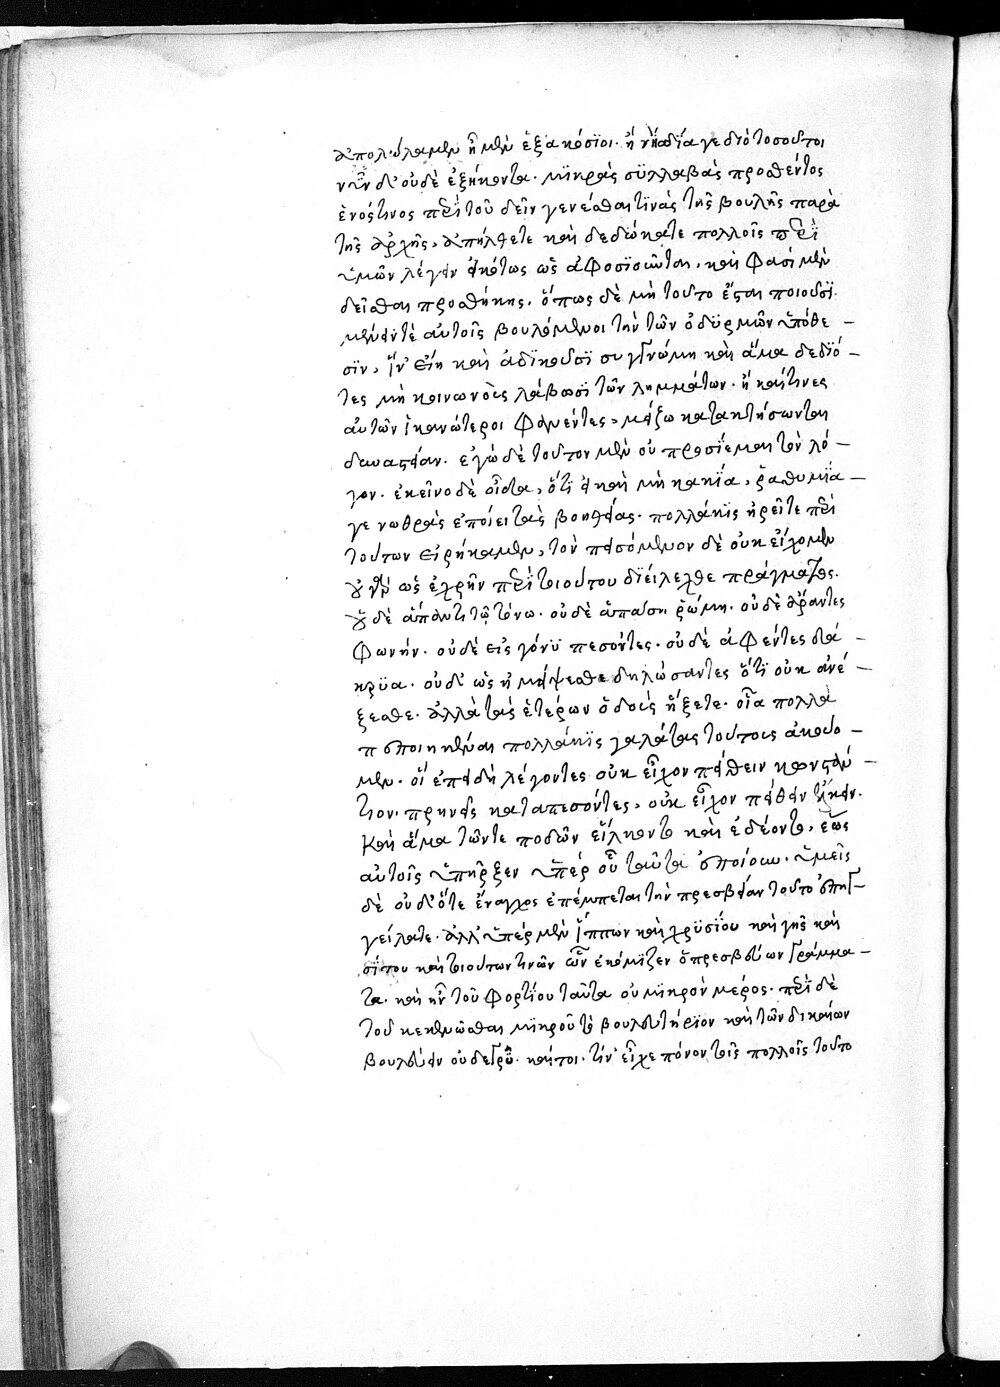 ἀπολαύσαμεν ἦμεν ἑξακόσιοι. ἢ νὴ δία γε δὶς τοσοῦτοι
νῦν δ' οὐδὲ ἑξήκοντα. μικρὰς συλλαβὰς προσθέντος
ἑνός τινος περὶ τοῦ δεῖν γενέσθαι τινὰς τῆς βουλῆς παρὰ
τῆς ἀρχῆς, ἀπήλθετε καὶ δεδώκατε πολλοῖς περὶ
ὑμῶν λέγειν εἰκότως ὡς ἀφοσιοῦνται, καὶ φασὶ μὲν
δεῖσθαι προσθήκης. ὅπως δὲ μὴ τοῦτο ἔσται ποιοῦσι.
μένειν τὲ αὐτοῖς βουλόμενοι τὴν τῶν ὀδυρμῶν ὑπόθε
σιν, ἵν' εἴη καὶ ἀδικοῦσι συγγνώμη καὶ ἅμα δεδιό
τες μὴ κοινωνοὺς λάβωσι τῶν λημμάτων. ἢ καί τινες
αὐτῶν ἱκανώτεροι φανέντες, μείζω κατακτήσωνται
δυναστείαν. ἐγὼ δὲ τοῦτον μὲν οὐ προσίεμαι τὸν λό
γον. ἐκεῖνο δὲ οἶδα, ὅτι εἰ καὶ μὴ κακία, ῥαθυμία
γε νωθρὰς ἐποίει τὰς βοηθείας. πολλάκις ἠρεῖτε περὶ
τούτων εἰρήκαμεν, τὸν πεισόμενον δὲ οὐκ εἴχομεν
οὐ γὰρ ὡς ἐχρῆν περὶ τοιούτου διείλεχθε πράγματος.
οὐδὲ ἅπαντι τῷ τόνω. οὐδὲ ἁπάσῃ ῥώμῃ. οὐδὲ ἄραντες
φωνήν. οὐδὲ εἰς γόνυ πεσόντες. οὐδὲ ἀφέντες δά
κρυα. οὐδ' ὡς ἠμείψεσθε δηλώσαντες ὅτι οὐκ ἀνέ
ξεσθε. ἀλλὰ τὰς ἑτέρων ὁδοὺς ἥξετε. οἷα πολλὰ
πεποιηκέναι πολλάκις γαλάτας τούτους ἀκούο
μεν. οἵ ἐπειδὴ λέγοντες οὐκ εἶχον πείθειν
πρηνεῖς καταπεσόντες, οὐκ εἶχον πείθειν εἴκειν.
καὶ ἅμα τῶν τε ποδῶν εἵλκοντο καὶ ἐδέοντο, ἕως
αὐτοῖς ὑπῆρξεν ὑπὲρ οὗ ταῦτα ἐποίουν. ὑμεῖς
δὲ οὐδ' ὅτε ἔναγχος ἐπέμπεται τὴν πρεσβείαν τοῦτο ἐπηγ
γείλατε. ἀλλ' ὑπὲρ μὲν ἵππων καὶ χρυσίου καὶ γῆς καὶ
σίτου καὶ τοιούτων τινῶν ὧν ἐκόμιζεν ὁ πρεσβεύων γράμμα
τα. καὶ ἦν τοῦ φορτίου ταῦτα οὐ μικρὸν μέρος. περὶ δὲ
τοῦ κεκενῶσθαι μικροῦ τὸ βουλευτήριον καὶ τῶν δικαίων
βουλεύειν οὐδὲ γρῦ. καίτοι. τίν' εἶχε πόνον τοῖς πολλοῖς τοῦτο